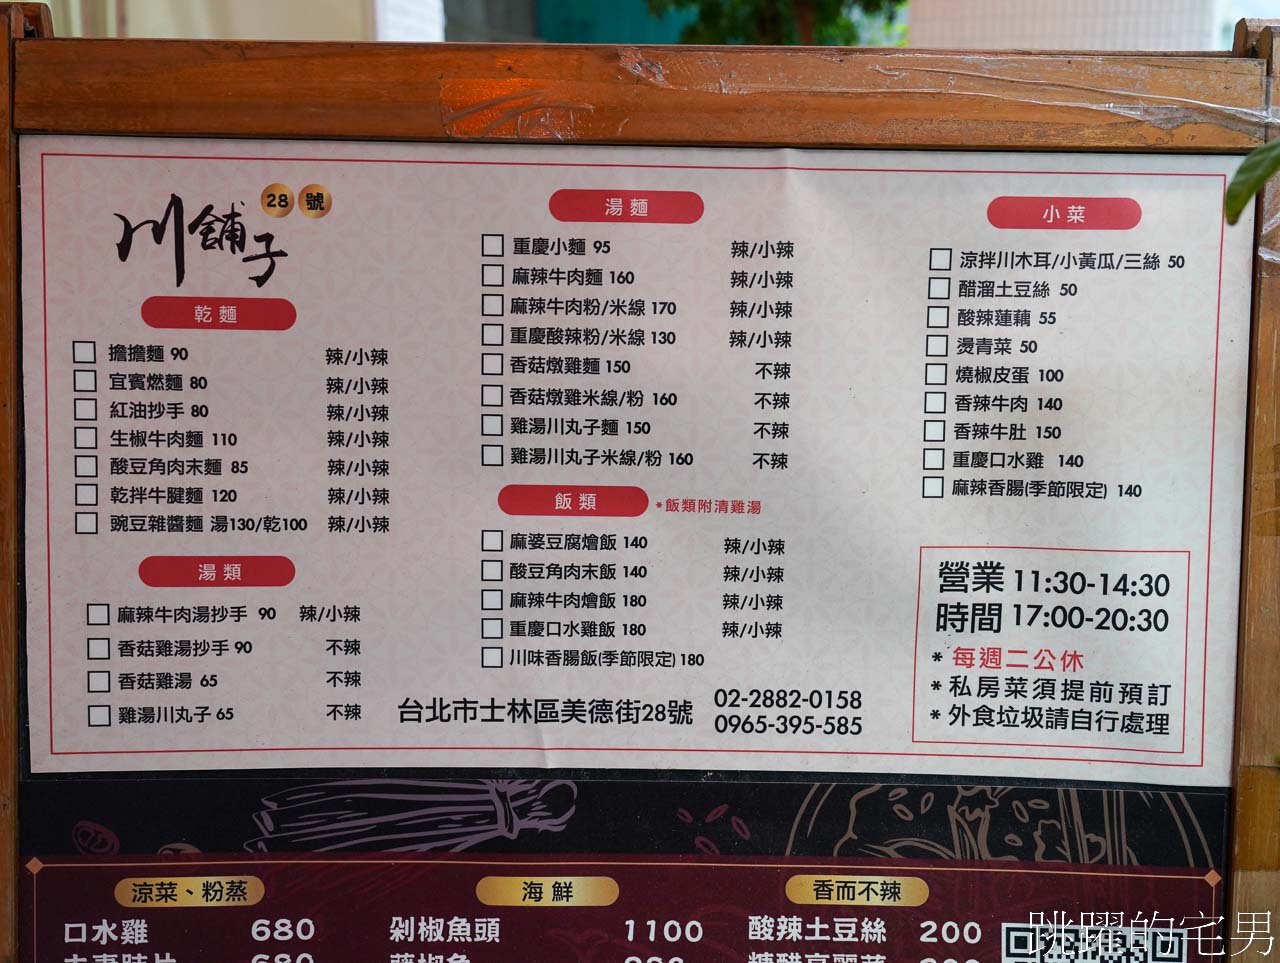 川舖子 28 號
乾麵
擔擔麵 90 辣/小辣
宜賓燃麵 80 辣/小辣
紅油抄手 80 辣/小辣
生椒牛肉麵 110 辣/小辣
酸豆角肉末麵 85 辣/小辣
乾拌牛腱麵 120 辣/小辣
豌豆雜醬麵 湯130/乾100 辣/小辣
湯類
麻辣牛肉湯抄手 90 辣/小辣
香菇雞湯抄手 90 不辣
香菇雞湯 65 不辣
雞湯川丸子 65 不辣
湯麵
重慶小麵 95 辣/小辣
麻辣牛肉麵 160 辣/小辣
麻辣牛肉粉/米線 170 辣/小辣
重慶酸辣粉/米線 130 辣/小辣
香菇燉雞麵 150 不辣
香菇燉雞米線/粉 160 不辣
雞湯川丸子麵 150 不辣
雞湯川丸子米線/粉 160 不辣
飯類 *飯類附清雞湯
麻婆豆腐燴飯 140 辣/小辣
酸豆角肉末飯 140 辣/小辣
麻辣牛肉燴飯 180 辣/小辣
重慶口水雞飯 180 辣/小辣
川味香腸飯(季節限定) 180
小菜
涼拌川木耳/小黃瓜/三絲 50
醋溜土豆絲 50
酸辣蓮藕 55
燙青菜 50
燒椒皮蛋 100
香辣牛肉 140
香辣牛肚 150
重慶口水雞 140
麻辣香腸(季節限定) 140
營業時間 11:30-14:30
17:00-20:30
* 每週二公休
* 私房菜須提前預訂
* 外食垃圾請自行處理
台北市士林區美德街28號
02-2882-0158
0965-395-585
涼菜、粉蒸
口水雞 680
海鮮
剁椒魚頭 1100
香而不辣
酸辣土豆絲 200
跳躍的宅男